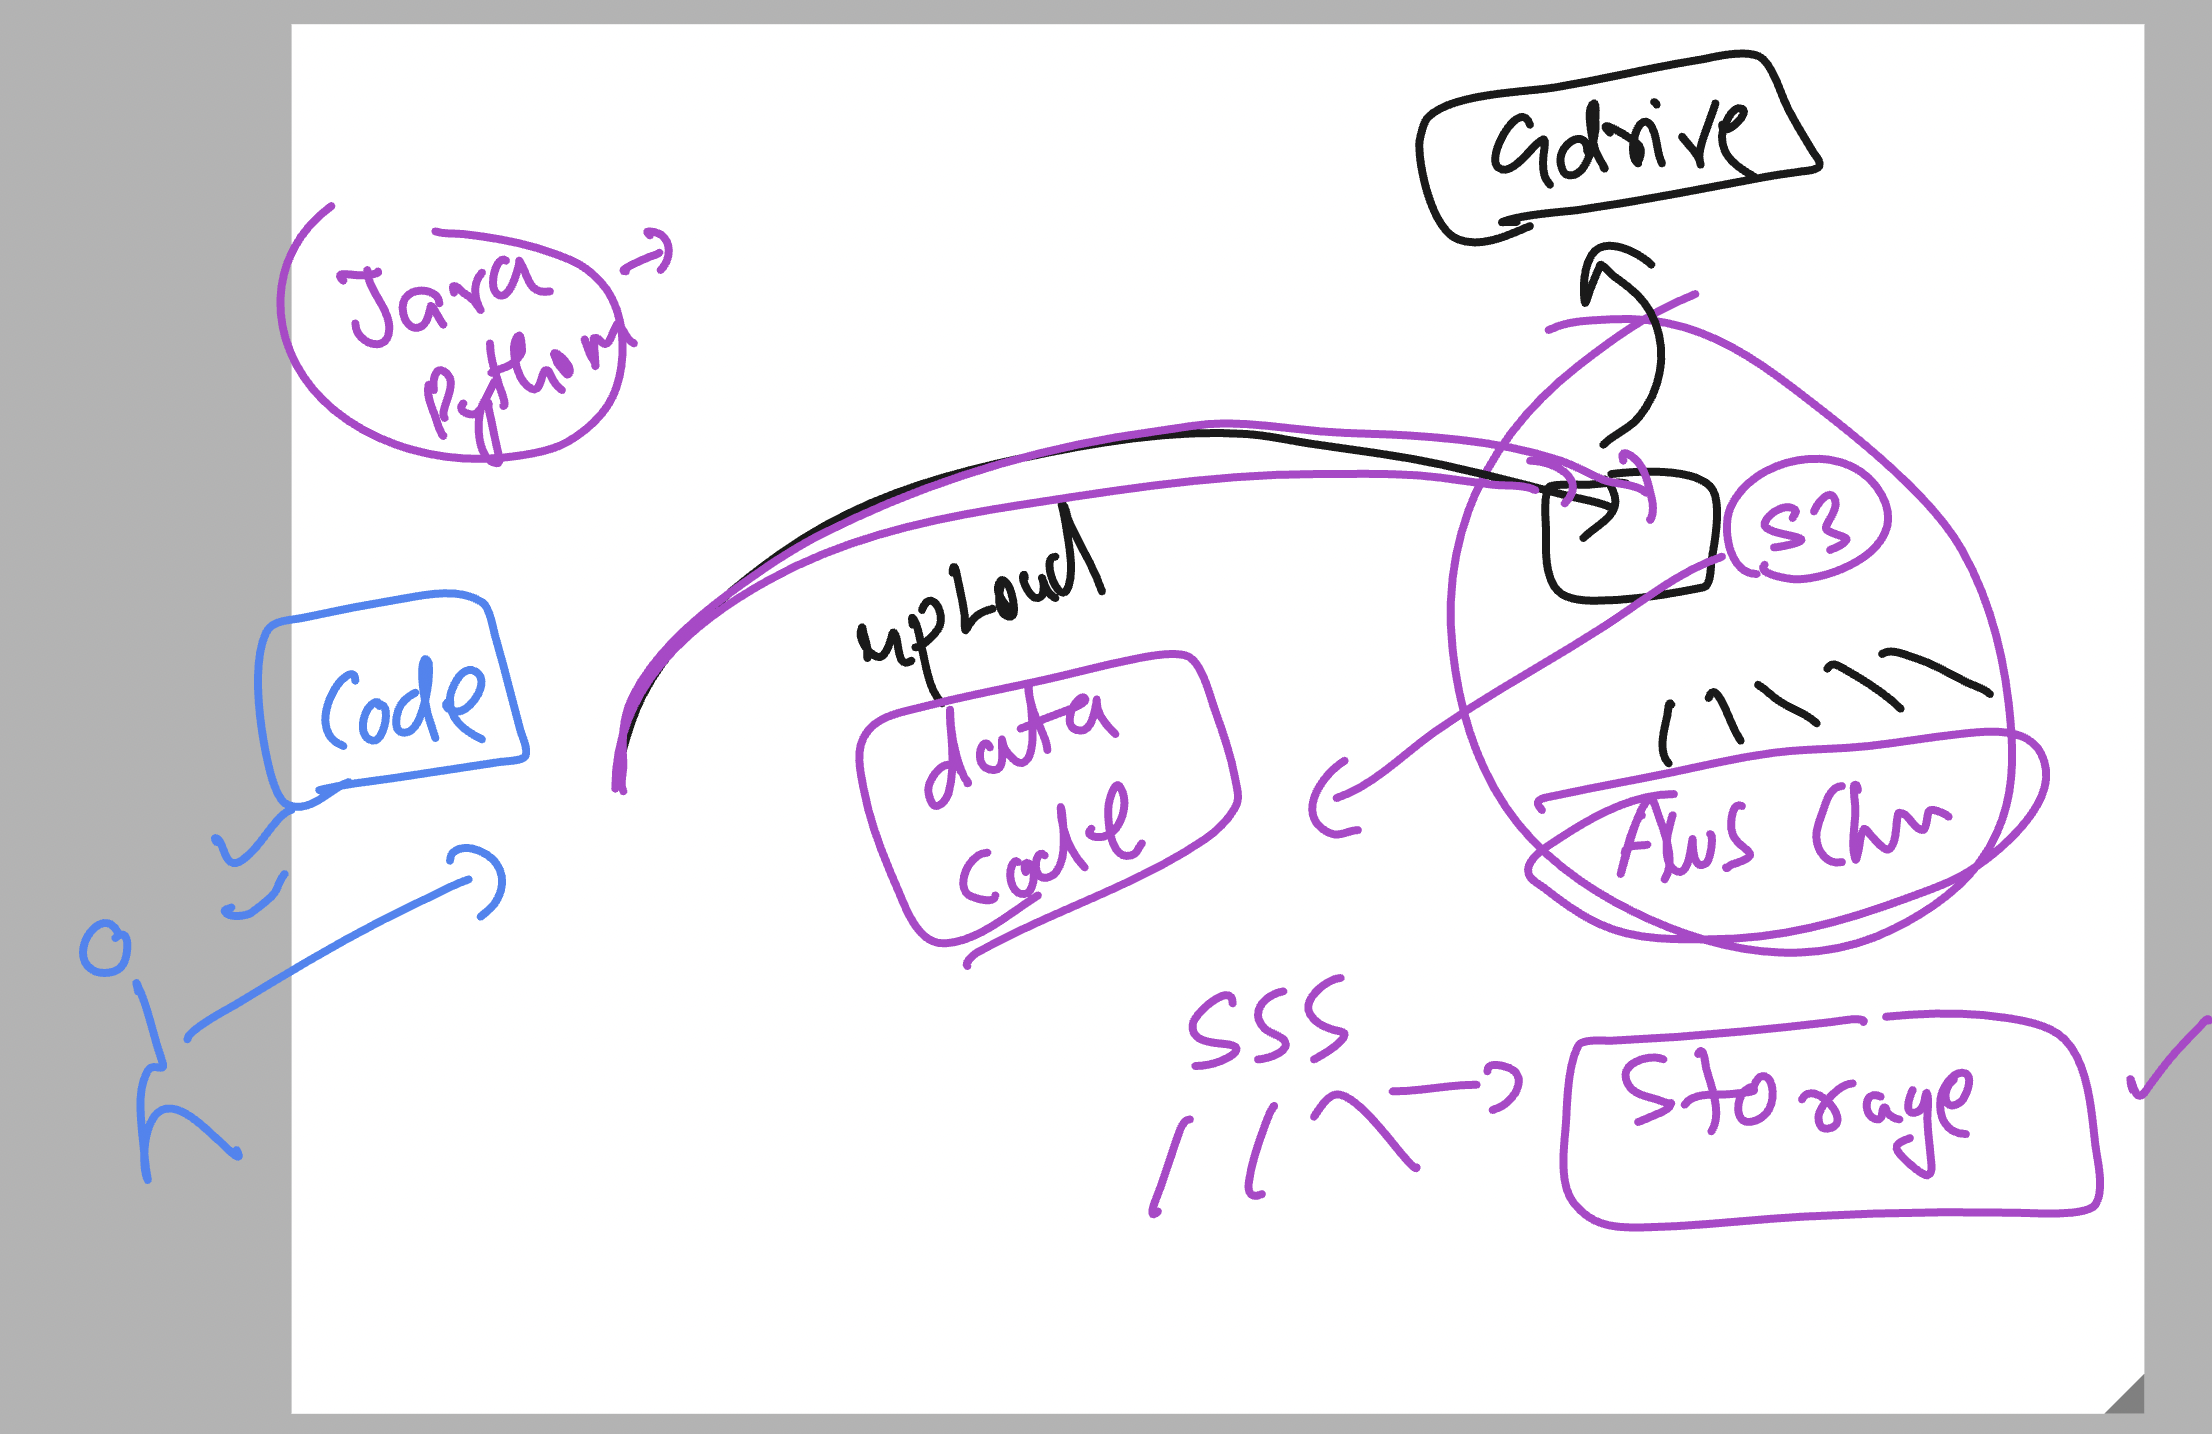 Gdrive
Java
Python
S3
upload
Code
data
code
AWS
SSS
Storage